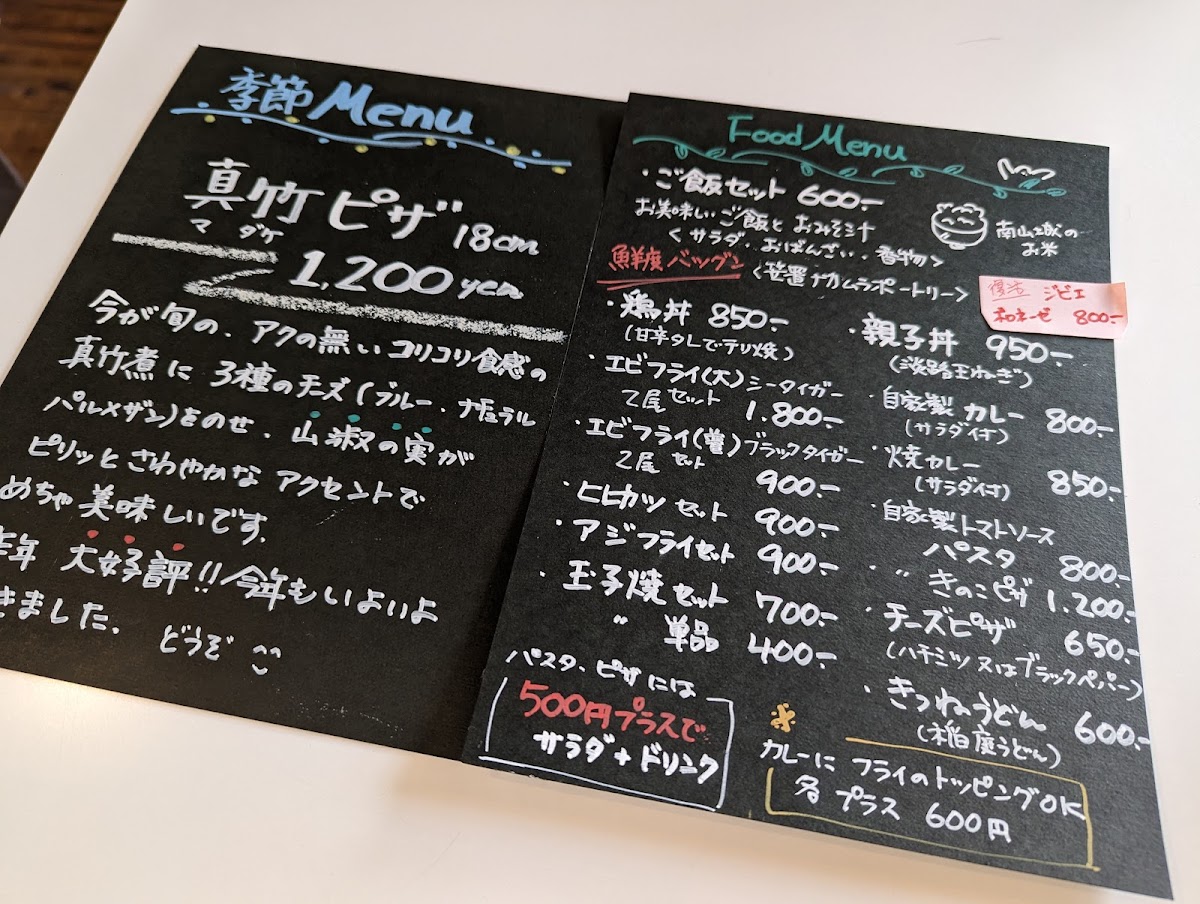 季節 Menu
真竹ピザ 18cm
マダケ
1,200 yen
今が旬の、アクの無いコリコリ食感の
真竹煮に 3種のチーズ(ブルー、ナチュラル
パルメザン)をのせ、山淑の実が
ピリッとさわやかな アクセントで
めちゃ美味しいです。
昨年 大好評!!今年もいよいよ
きました。 どうぞ
Food Menu
・ご飯セット 600-
お美味い・ご飯と おみそ汁
<サラダ・おばんざい・香物>
南山城の
お米
鮮度バツグン
<笠置ナカムラポートリー>
復活 ジビエ
800-
・鶏丼 850-
(甘辛タレでテリ焼)
・エビフライ(大)シータイガー
2尾セット 1.800-
・エビフライ( )ブラックタイガー
2尾セット
900-
・ヒレカツ セット 900-
・アジフライセット 900-
・玉子焼セット 700-
〃 単品 400-
パスタ、ピザには
500円プラスで
サラダ+ドリンク
・親子丼 950-
(淡路玉ねぎ)
・自家製 カレー 800-
(サラダ付)
・焼カレー
(サラダ付) 850-
・自家製トマトソース
パスタ 800-
・〃 きのこピザ 1.200-
・チーズピザ 650-
(ハチミツ又はブラックペパー)
・きつねうどん 600-
(稲庭うどん)
カレーに フライのトッピングOK
各 プラス 600円